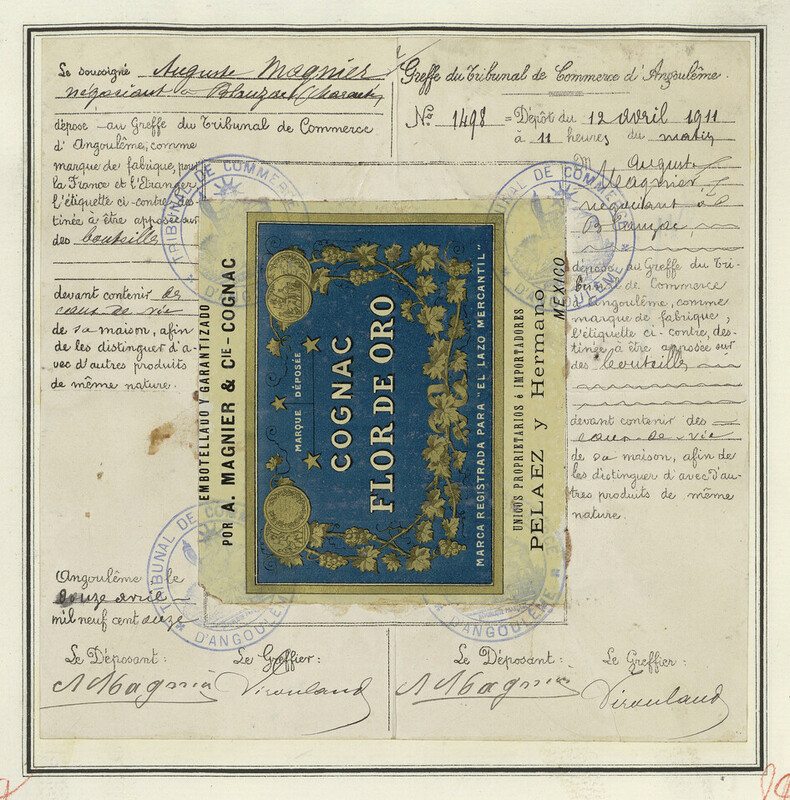 Le soussigné Auguste Magnier
négociant à Blanzac (Charente)
dépose au Greffe du Tribunal de Commerce
d'Angoulême, comme
marque de fabrique, pour
la France et l'Etranger
l'étiquette ci-contre, des-
tinée à être apposée sur
des bouteilles
devant contenir des
eaux de vie
de sa maison, afin
de les distinguer d'a-
vec d'autres produits
de même nature.
Angoulême le
douze avril
mil neuf cent onze
Le Déposant: Le Greffier:
A Magnier
Greffe du Tribunal de Commerce d'Angoulême.
No. 1498 = Dépôt du 12 avril 1911
à 11 heures du matin
M Auguste
Magnier,
négociant à
Blanzac,
dépose au Greffe du Tri-
bunal de Commerce
d'Angoulême, comme
marque de fabrique,
l'étiquette ci-contre, des-
tinée à être apposée sur
des bouteilles
devant contenir des
eaux-de-vie
de sa maison, afin de
les distinguer d'avec d'au-
tres produits de même
nature.
Le Déposant: Le Greffier:
A Magnier
EMBOTELLADO Y GARANTIZADO
POR A. MAGNIER & CIE - COGNAC
MARQUE DÉPOSÉE
COGNAC
FLOR DE ORO
MARCA REGISTRADA PARA "EL LAZO MERCANTIL"
UNICOS PROPRIETARIOS é IMPORTADORES
PELAEZ y Hermano
MEXICO
TRIBUNAL DE COMMERCE
TRIBUNAL DE COMMERCE
D'ANGOULÊME
TRIBUNAL DE
D'ANGOULÊME
D'ANGOULÊME